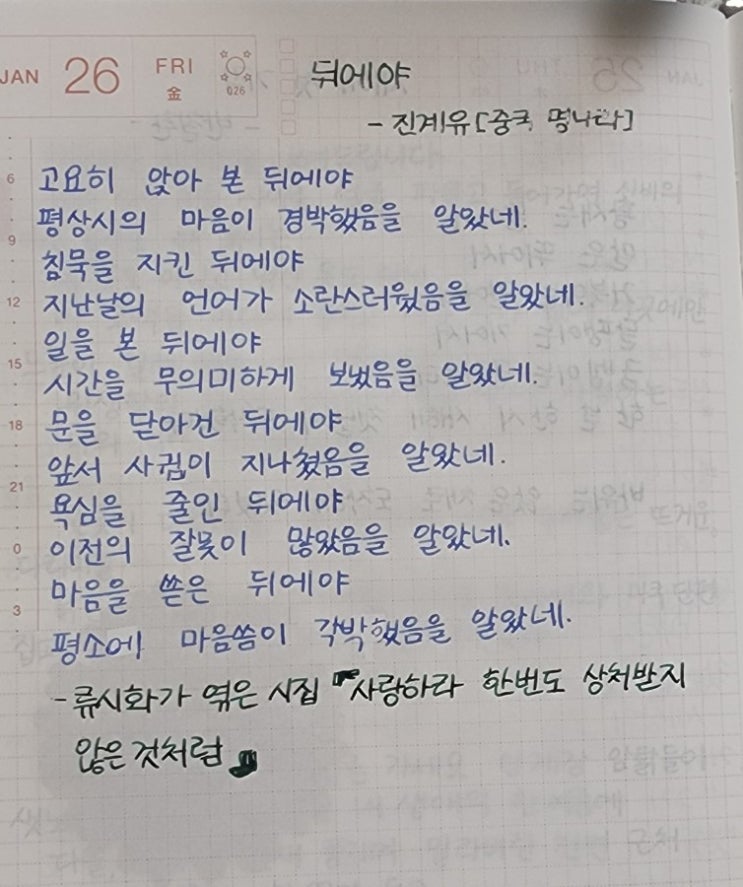 JAN 26 FRI
金
026
뒤에야
- 진계유 [중국 명나라]
6
고요히 앉아 본 뒤에야
평상시의 마음이 경박했음을 알았네.
9
침묵을 지킨 뒤에야
12
지난날의 언어가 소란스러웠음을 알았네.
일을 본 뒤에야
15
시간을 무의미하게 보냈음을 알았네.
18
문을 닫아건 뒤에야
앞서 사귐이 지나쳤음을 알았네.
21
욕심을 줄인 뒤에야
0
이전의 잘못이 많았음을 알았네.
마음을 쏟은 뒤에야
3
평소에 마음씀이 각박했음을 알았네.
- 류시화가 엮은 시집 『사랑하라 한번도 상처받지
않은 것처럼』